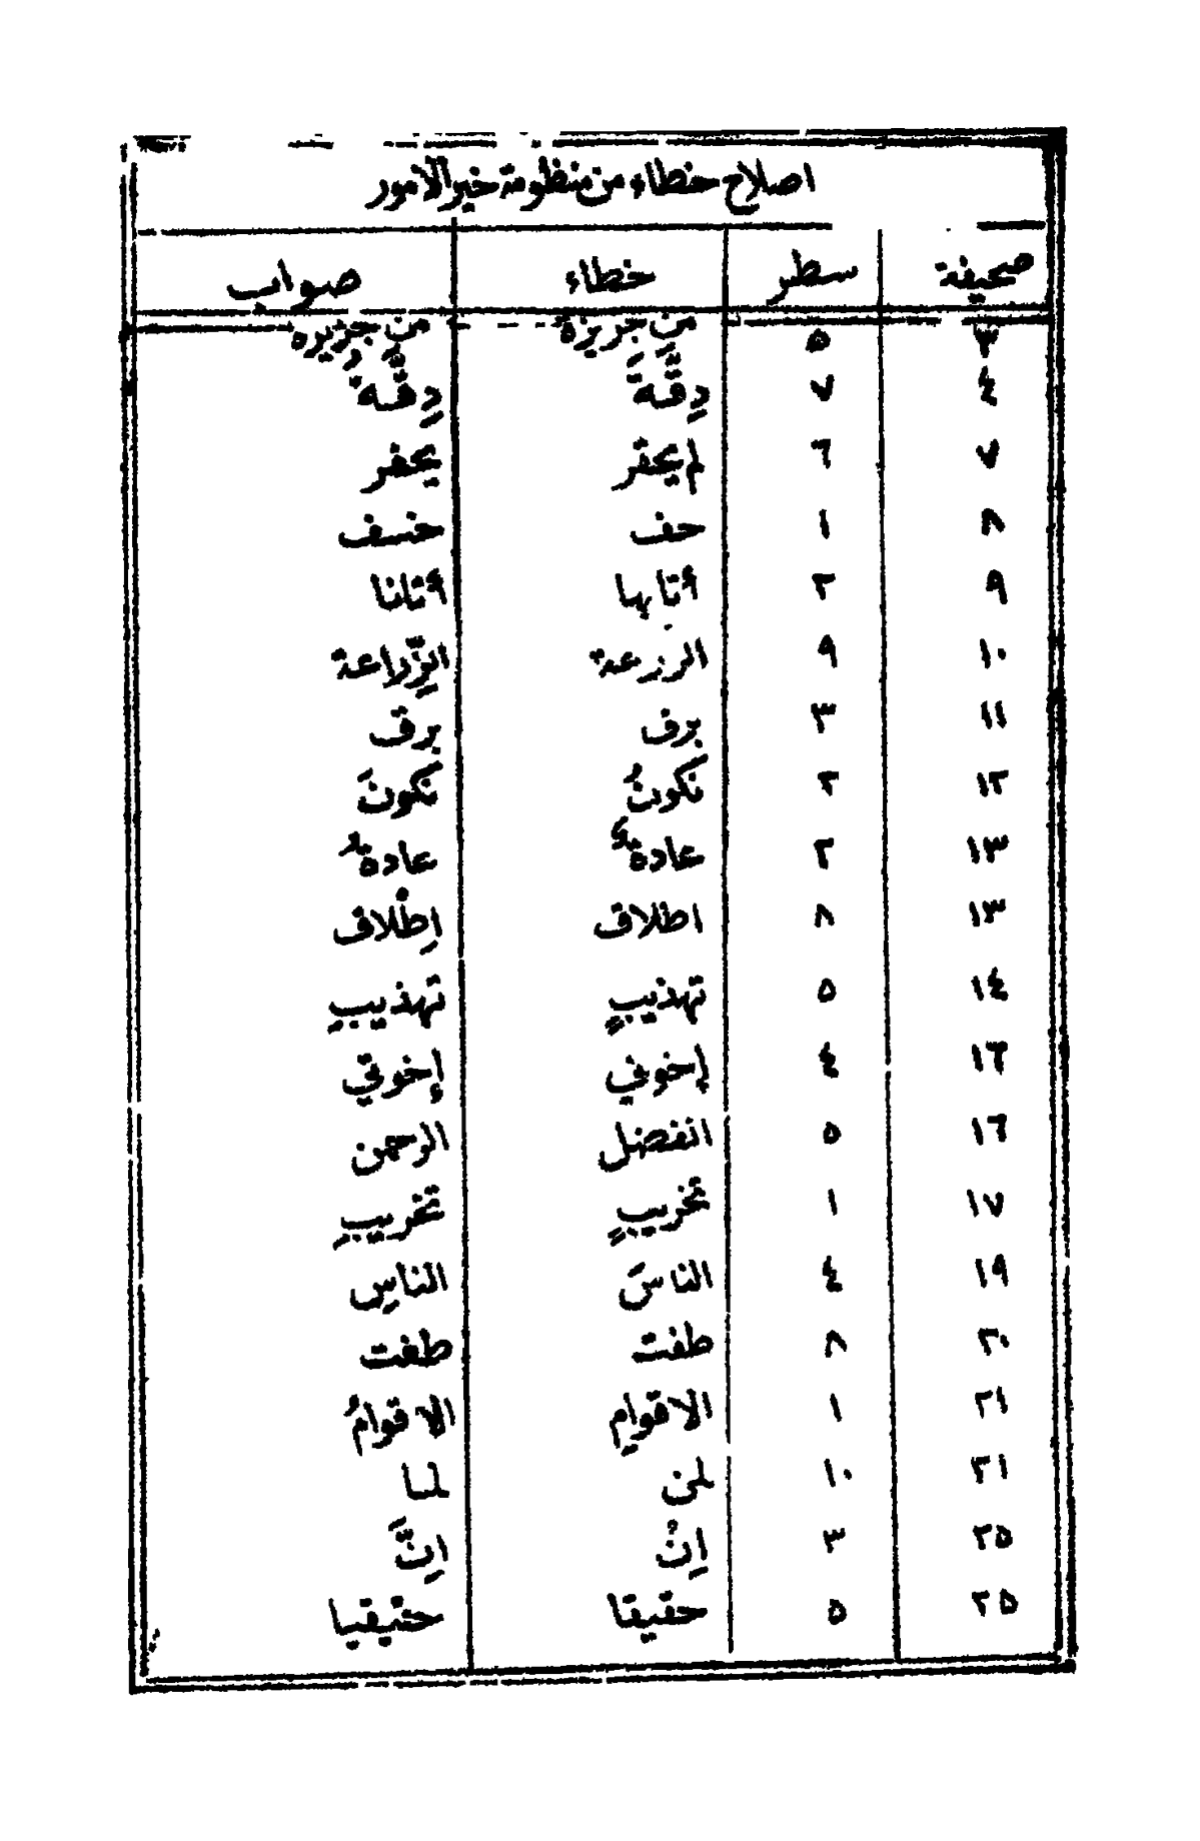 اصلاح خطاء من منظومة خير الامور
صحيفة سطر خطاء صواب
٣ ٥ من جريزة من جزيره
٤ ٧ دِقَّةَ دِقَّةً
٧ ٦ لم يحقر يحفر
٨ ١ حف خسف
٩ ٢ أتابها أتانا
١٠ ٩ الرزعة الزّراعة
١١ ٣ برف برق
١٢ ٢ تكونُ تكونَ
١٣ ٢ عادة عادة
١٣ ٨ اطلاق اِطْلاق
١٤ ٥ تهذيبٍ تهذيبِ
١٦ ٤ إخوني إخوتي
١٦ ٥ انفضل الرحمن
١٧ ١ تخريبٍ تخريبِ
١٩ ٤ الناسَ الناسِ
٢٠ ٨ طفت طفت
٢١ ١ الاقوامِ الاقوامُ
٢١ ١٠ لمن لما
٢٥ ٣ اِنْ اِنَّ
٢٥ ٥ حقيقا حقيقيا